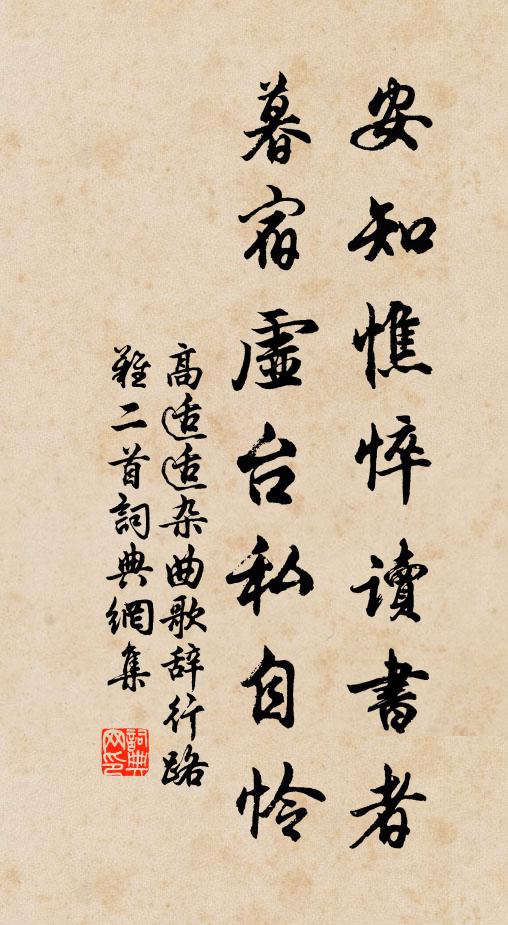 安知憔悴讀書者
暮宿虛台私自怜
高适适杂曲歌辞行路
難二首詞典網集
詞典
网印